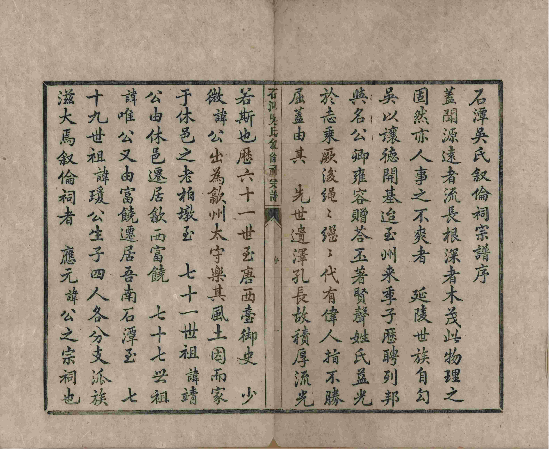 石潭吳氏叙倫祠宗譜序
蓋聞源遠者流長根深者木茂此物理之
固然亦人事之不爽者 延陵世族自勾
吳以讓德開基迨至州来季子歷聘列邦
與名公卿雍容贈荅丕著賢聲姓氏益光
於志乘厥後繩〻繼〻代有偉人指不勝
屈蓋由其 先世遺澤孔長故積厚流光
石潭吳氏叙倫祠宗譜
若斯也歷六十一世至唐西臺御史 少
微諱公出為歙州太守樂其風土因而家
于休邑之老柏墩至 七十一世祖 諱靖
公由休邑遷居歙西富饒 七十七世祖
諱唯公又由富饒遷居吾南石潭至 七
十九世祖諱瑗公生子四人各分支派族
滋大焉叙倫祠者 應元諱公之宗祠也